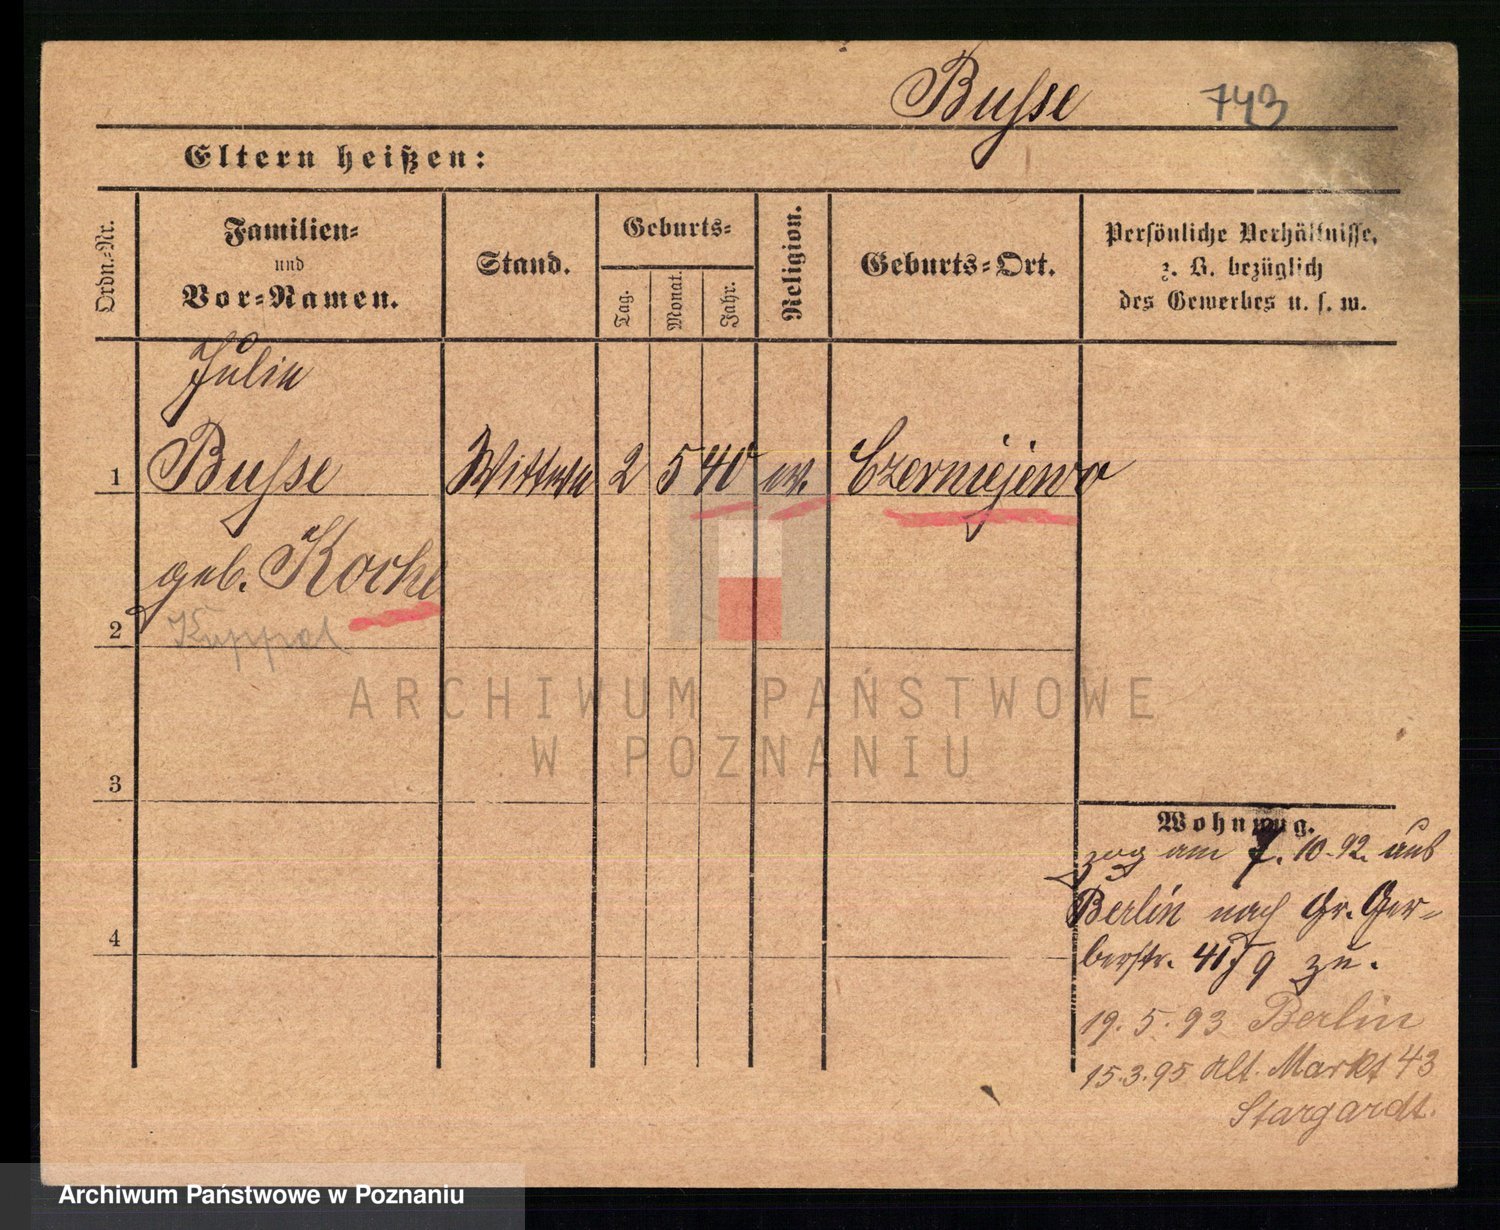 Busse 743
Eltern heißen:
Ordn.-Nr.
Familien-
und
Vor-Namen.
Stand.
Geburts-
Tag.
Monat.
Jahr.
Religion.
Geburts-Ort.
Persönliche Verhältnisse,
z. B. bezüglich
des Gewerbes u. s. w.
Julie
1 Busse Wittwe 2 5 40 ev. Czerniejewo
geb. Koche
2
3
4
Wohnung.
zog am 7. 10. 92. aus
Berlin nach Gr. Ger-
berstr. 41/9 zu.
19. 5. 93 Berlin
15. 3. 95 Alt. Markt 43
Stargardt.
ARCHIWUM PAŃSTWOWE
W POZNANIU
Archiwum Państwowe w Poznaniu